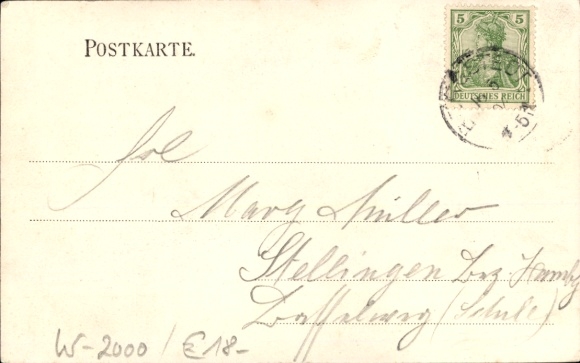 POSTKARTE.
5 5
DEUTSCHES REICH
Frl.
Mary Müller
Stellingen bez. Hambg
(Schule)
W-2000 / € 18-